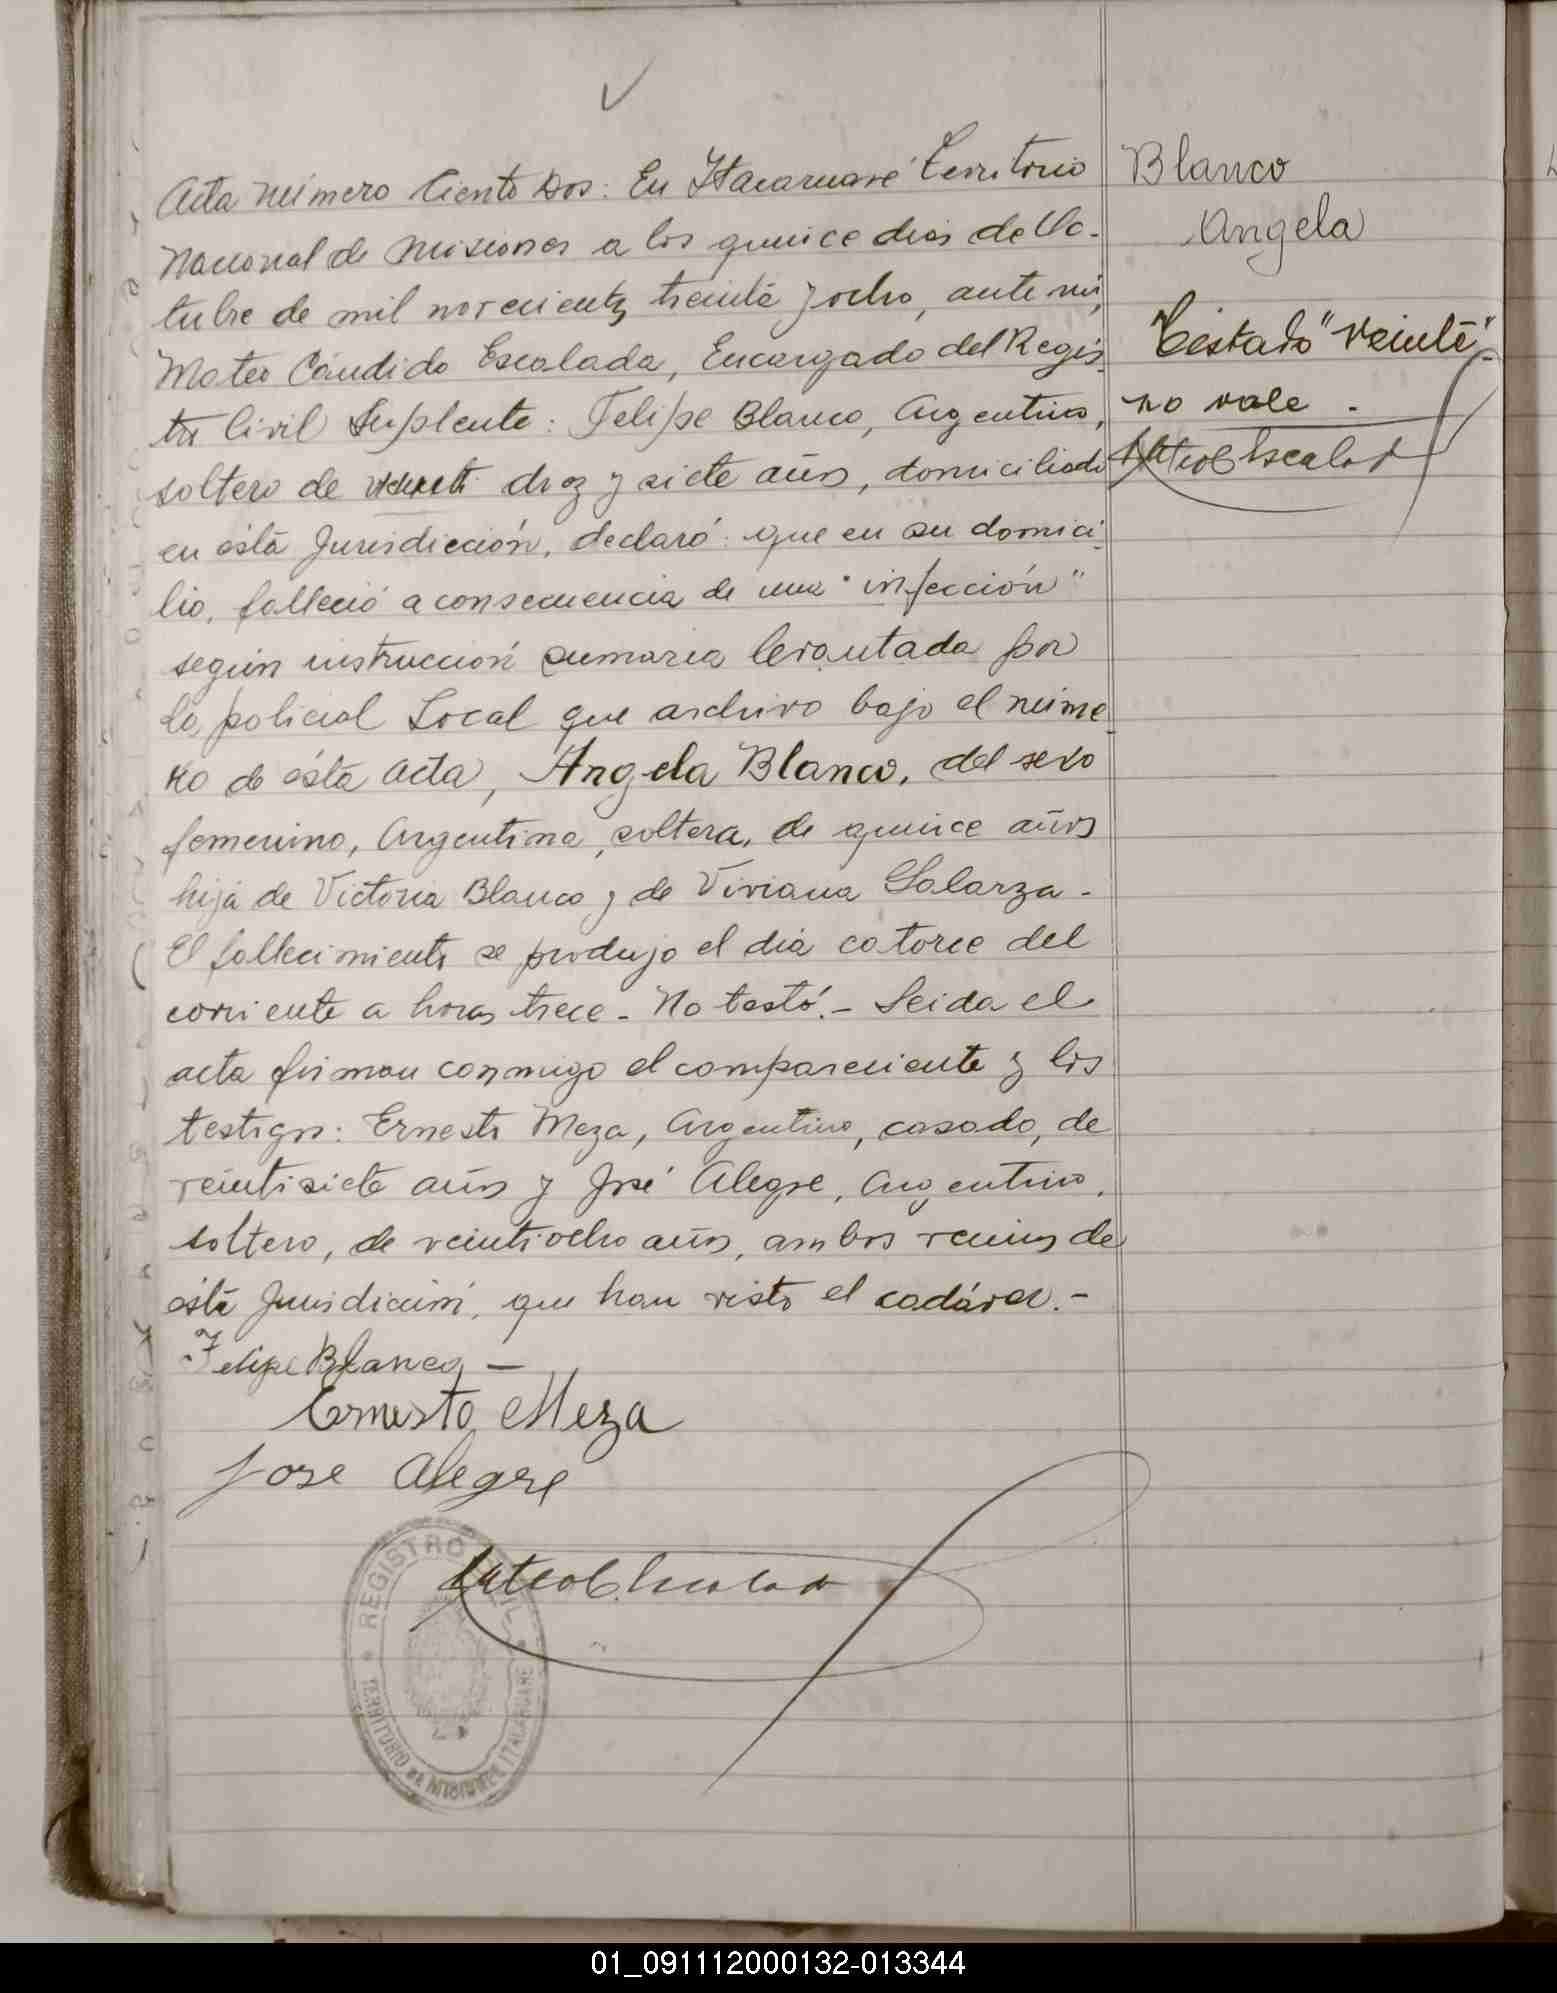 Acta número Ciento Dos: En Itacaruaré Territorio
Nacional de Misiones a los quince dias de Oc-
tubre de mil novecientos treinta y ocho, ante mi,
Mateo Cándido Escalada, Encargado del Regis-
tro Civil Suplente: Felipe Blanco, Argentino,
soltero de veinti diez y siete años, domiciliado
en ésta Jurisdicción, declaró: que en su domici-
lio, falleció a consecuencia de una "infección"
según instrucción sumaria levantada por
la policial Local que archivo bajo el núme-
ro de ésta acta, Angela Blanco, del sexo
femenino, Argentina, soltera, de quince años
hija de Victoria Blanco y de Viviana Galarza-
El fallecimiento se produjo el día catorce del
corriente a horas trece- No testó.- Leida el
acta firman conmigo el compareciente y los
testigos: Ernesto Meza, Argentino, casado, de
veintisiete años y José Alegre, Argentino,
soltero, de veintiocho años, ambos vecinos de
ésta Jurisdicción, que han visto el cadáver.-
Felipe Blanco-
Ernesto Meza
Jose Alegre
Mateo C. Escalada
REGISTRO CIVIL
TERRITORIO DE MISIONES ITACARUARE
Blanco
Angela
Testado "veinti"-
no vale.
Mateo C Escalada
01_091112000132-013344